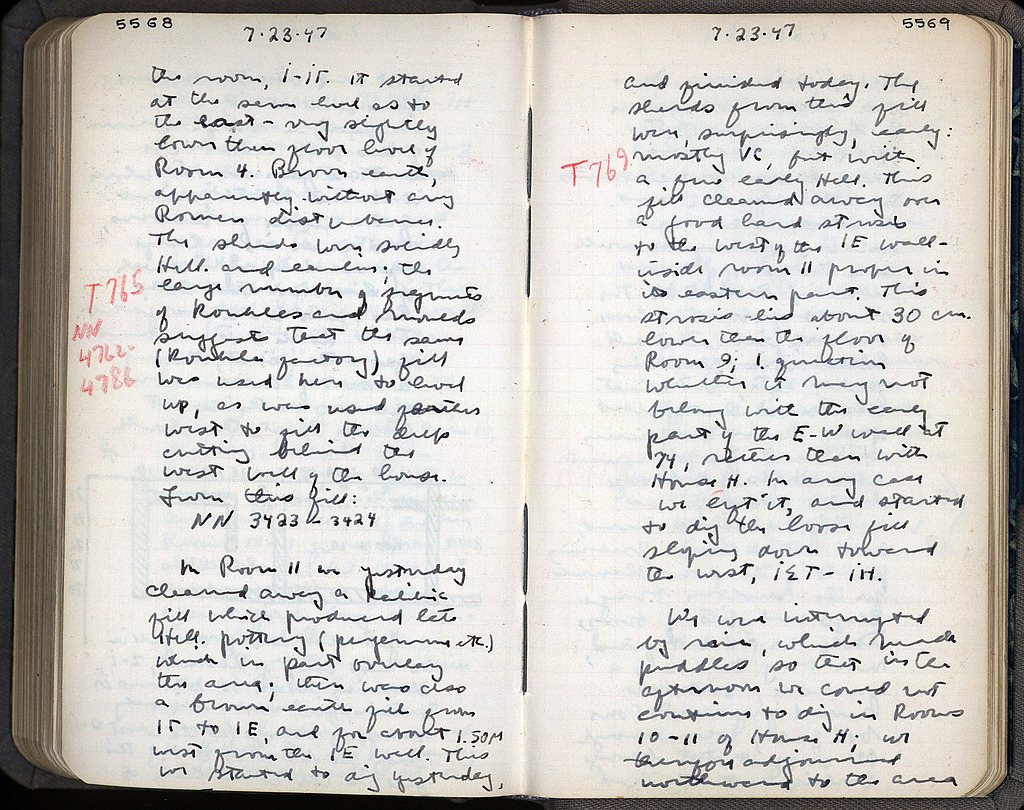 5568
7·23·47
the room, I-IT. It started
at the same level as to
the east - very slightly
lower than floor level of
Room 4. Brown earth,
apparently without any
Roman disturbance.
The sherds were solidly
Hell. and earlier; the
T 765
large number of fragments
of kraters and moulds
NN
4762-
4786
suggest that the same
factory) fill
was used here to level
up, as was used further
west to fill the deep
cutting behind the
west wall of the house.
From this fill:
NN 3423 - 3424
In Room 11 we yesterday
cleared away a
fill which produced late
Hell. pottery (pergamene etc.)
which in part overlay
the area; there was also
a brown earth fill from
IT to IE, and for about 1.50M
west from the IE wall. This
we started to dig yesterday,
5569
7·23·47
and finished today. The
sherds from this fill
were, surprisingly, early:
T 769
mostly VC, but with
a few early Hell. This
fill cleared away over
a good hard strosis
to the west of the IE wall -
inside room 11 proper in
its eastern part. This
strosis lies about 30 cm.
lower than the floor of
Room 9; I question
whether it may not
belong with the early
part of the E-W wall at
74, rather than with
House H. In any case
we left it, and started
to dig the loose fill
sloping down toward
the west, IET - IH.
We were interrupted
by rain, which made
puddles so that in the
afternoon we could not
continue to dig in Rooms
10-11 of House H; we
adjourned
northward to the area